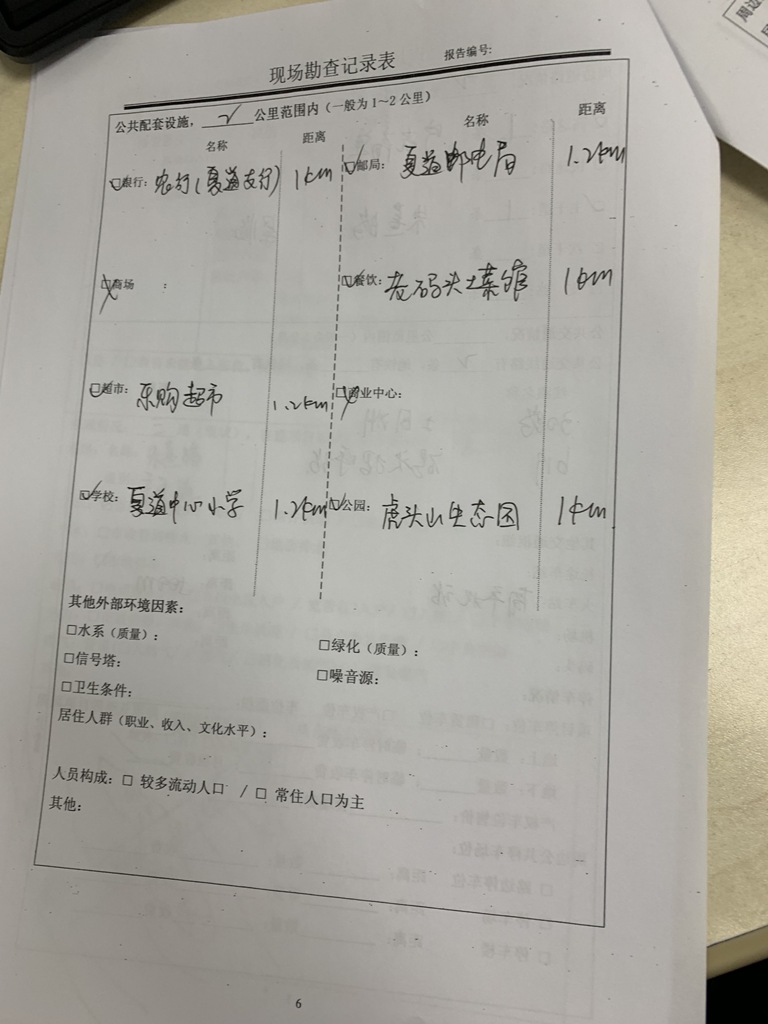 现场勘查记录表 报告编号:
公共配套设施，√公里范围内（一般为1~2公里）
名称 距离 名称 距离
☑银行: 农行(夏道支行) 1km ☑邮局: 夏道邮电局 1.2km
商场 : ☑餐饮: 老码头土菜馆 1km
☑超市: 乐购超市 1.2km 商业中心:
☑学校: 夏道中心小学 1.2km ☑公园: 虎头山生态园 1km
其他外部环境因素:
□水系（质量）: □绿化（质量）:
□信号塔: □噪音源:
□卫生条件:
居住人群（职业、收入、文化水平）:
人员构成: □ 较多流动人口 / □ 常住人口为主
其他:
6